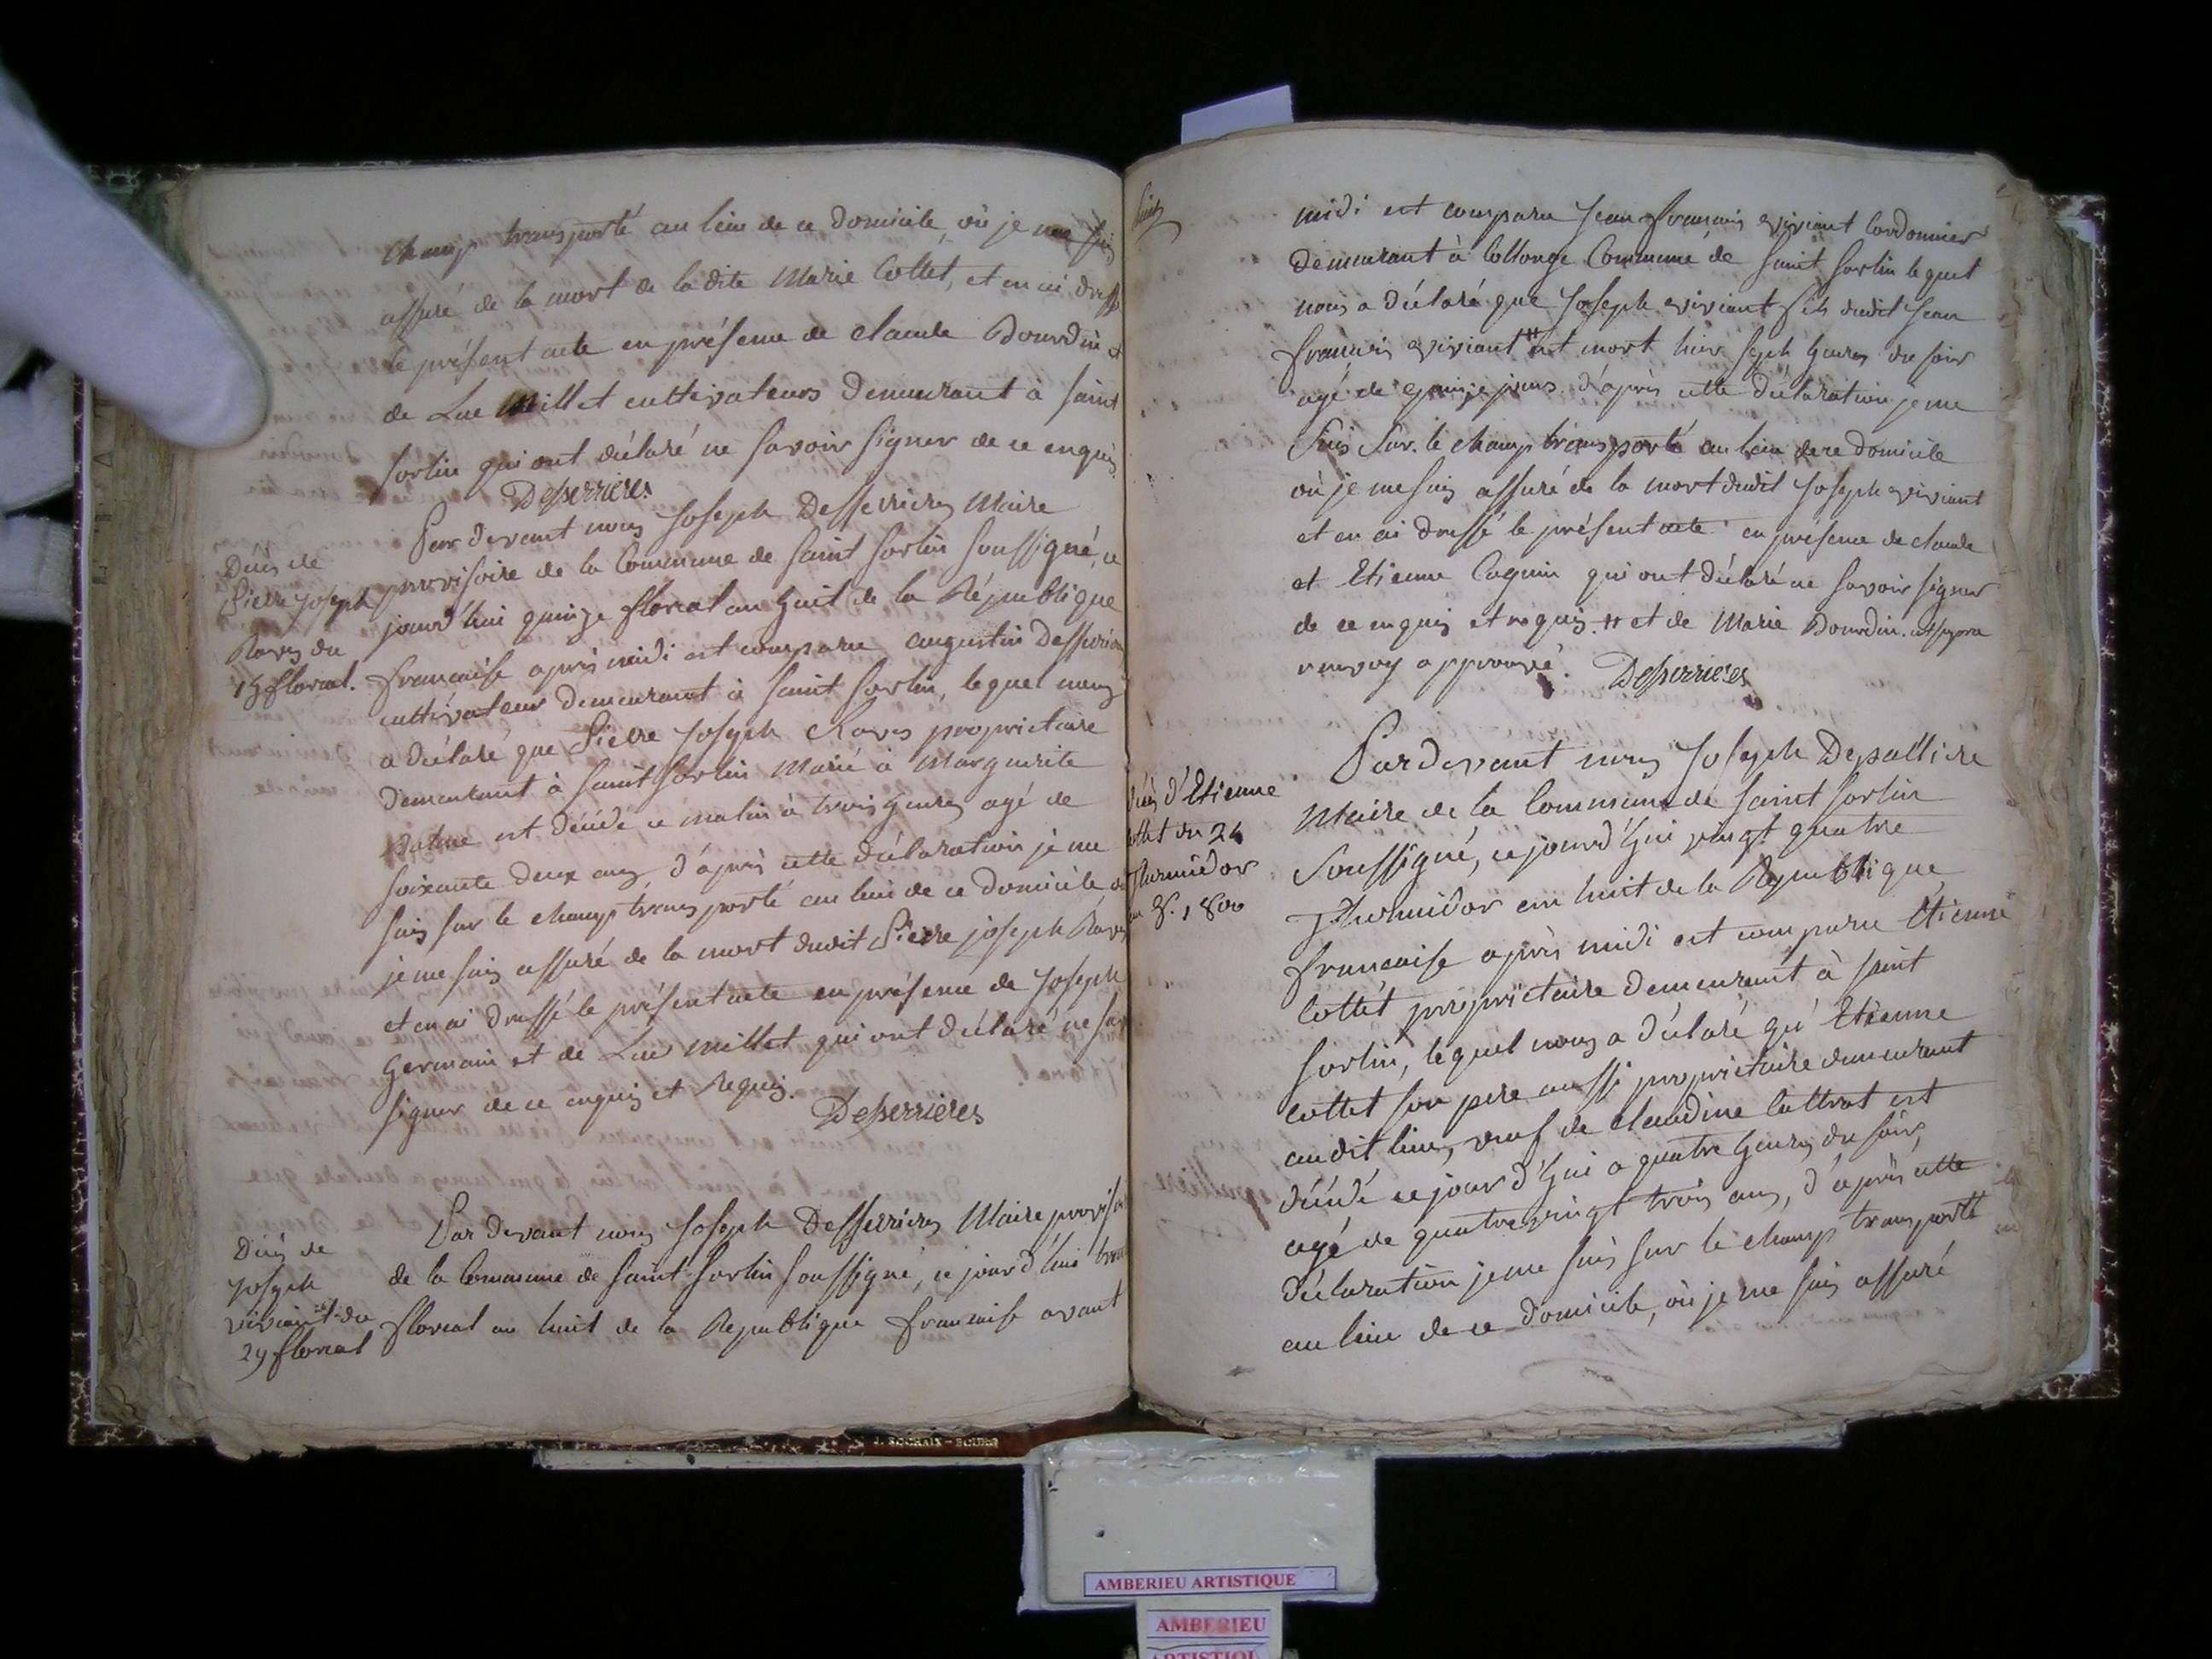 champ transporté au lieu de ce domicile, où je me suis
assuré de la mort de ladite Marie Collet, et en ai dressé
le présent acte en présence de claude Bourdin et
de Luc Millet cultivateurs demeurant à saint
sorlin qui ont déclaré ne savoir signer de ce enquis
Desserrieres
Décès de
Pierre Joseph
Ravis du
15 floreal.
Par devant nous Joseph Desserrieres Maire
provisoire de la Commune de saint sorlin soussigné, ce
jourd'hui quinze floreal an huit de la République
francaise après midi est comparu augustin desserrieres
cultivateur demeurant à saint sorlin, lequel nous
a déclaré que Pierre Joseph Raves proprietaire
demeurant à saint sorlin Marié à Marguerite
est décédé ce matin à trois heures agé de
soixante deux ans, d'après cette déclaration je me
suis sur le champ transporté au lieu de ce domicile où
je me suis assuré de la mort dudit Pierre joseph Raves
et en ai dressé le présent acte en présence de Joseph
Germain et de Luc Millet qui ont déclaré ne sav
signer de ce enquis et Requis.
Desserrieres
Décès de
Joseph
viviant du
29 floreal
Par devant nous Joseph Desserrieres Maire proviso
de la Commune de saint sorlin soussigné, ce jourd'hui
floreal an huit de la Republique francaise avant
midi est comparu Jean francois viviant Cordonnier
demeurant à Collonge Commune de saint sorlin lequel
nous a déclaré que Joseph viviant fils dudit Jean
francois viviant # est mort hier sept heures du soir
agé de quinze jours. d'après cette déclaration je me
suis sur le champ transporté au lieu de ce domicile
où je me suis assuré de la mort dudit Joseph viviant
et en ai dressé le présent acte en présence de claude
et Etienne Caquin qui ont déclaré ne savoir signer
de ce enquis et requis. # et de Marie Bourdin.
renvoy approuvé. Desserrieres
décès d'Etienne
Collet du 24
thermidor
an 8. 1800
Pardevant nous Joseph Depalliere
Maire de la Commune de saint sorlin
soussigné, ce jourd'hui vingt quatre
Thermidor an huit de la Republique
francaise après midi est comparu Etienne
Collet proprietaire demeurant à saint
sorlin, lequel nous a déclaré qu'Etienne
Collet son pere aussi proprietaire demeurant
audit lieu, veuf de claudine est
décédé ce jourd'hui a quatre heures du soir,
agé de quatre vingt trois ans, d'après cette
déclaration je me suis sur le champ transporté
au lieu de ce domicile, où je me suis assuré
J. ROCHAIX - BOURG
AMBERIEU ARTISTIQUE
AMBERIEU
ARTISTIQUE